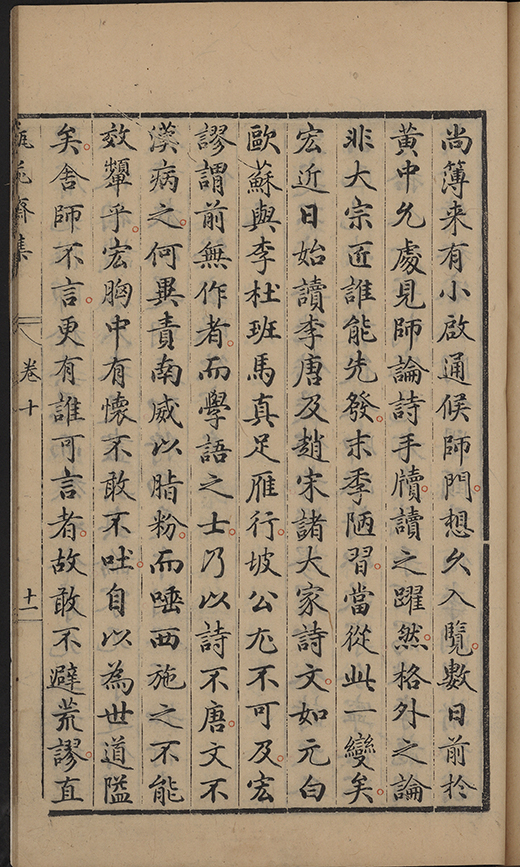 尚簿来有小啟通候師門想久入覽數日前於
黃中允處見師論詩手牘讀之躍然格外之論
非大宗匠誰能先發末季陋習當從此一變矣
宏近日始讀李唐及趙宋諸大家詩文如元白
歐蘇與李杜班馬真足雁行坡公尤不可及宏
謬謂前無作者而學語之士乃以詩不唐文不
漢病之何異責南威以脂粉而唾西施之不能
效顰乎宏胸中有懷不敢不吐自以為世道隘
矣舍師不言更有誰可言者故敢不避荒謬直
齋集
卷十
十一